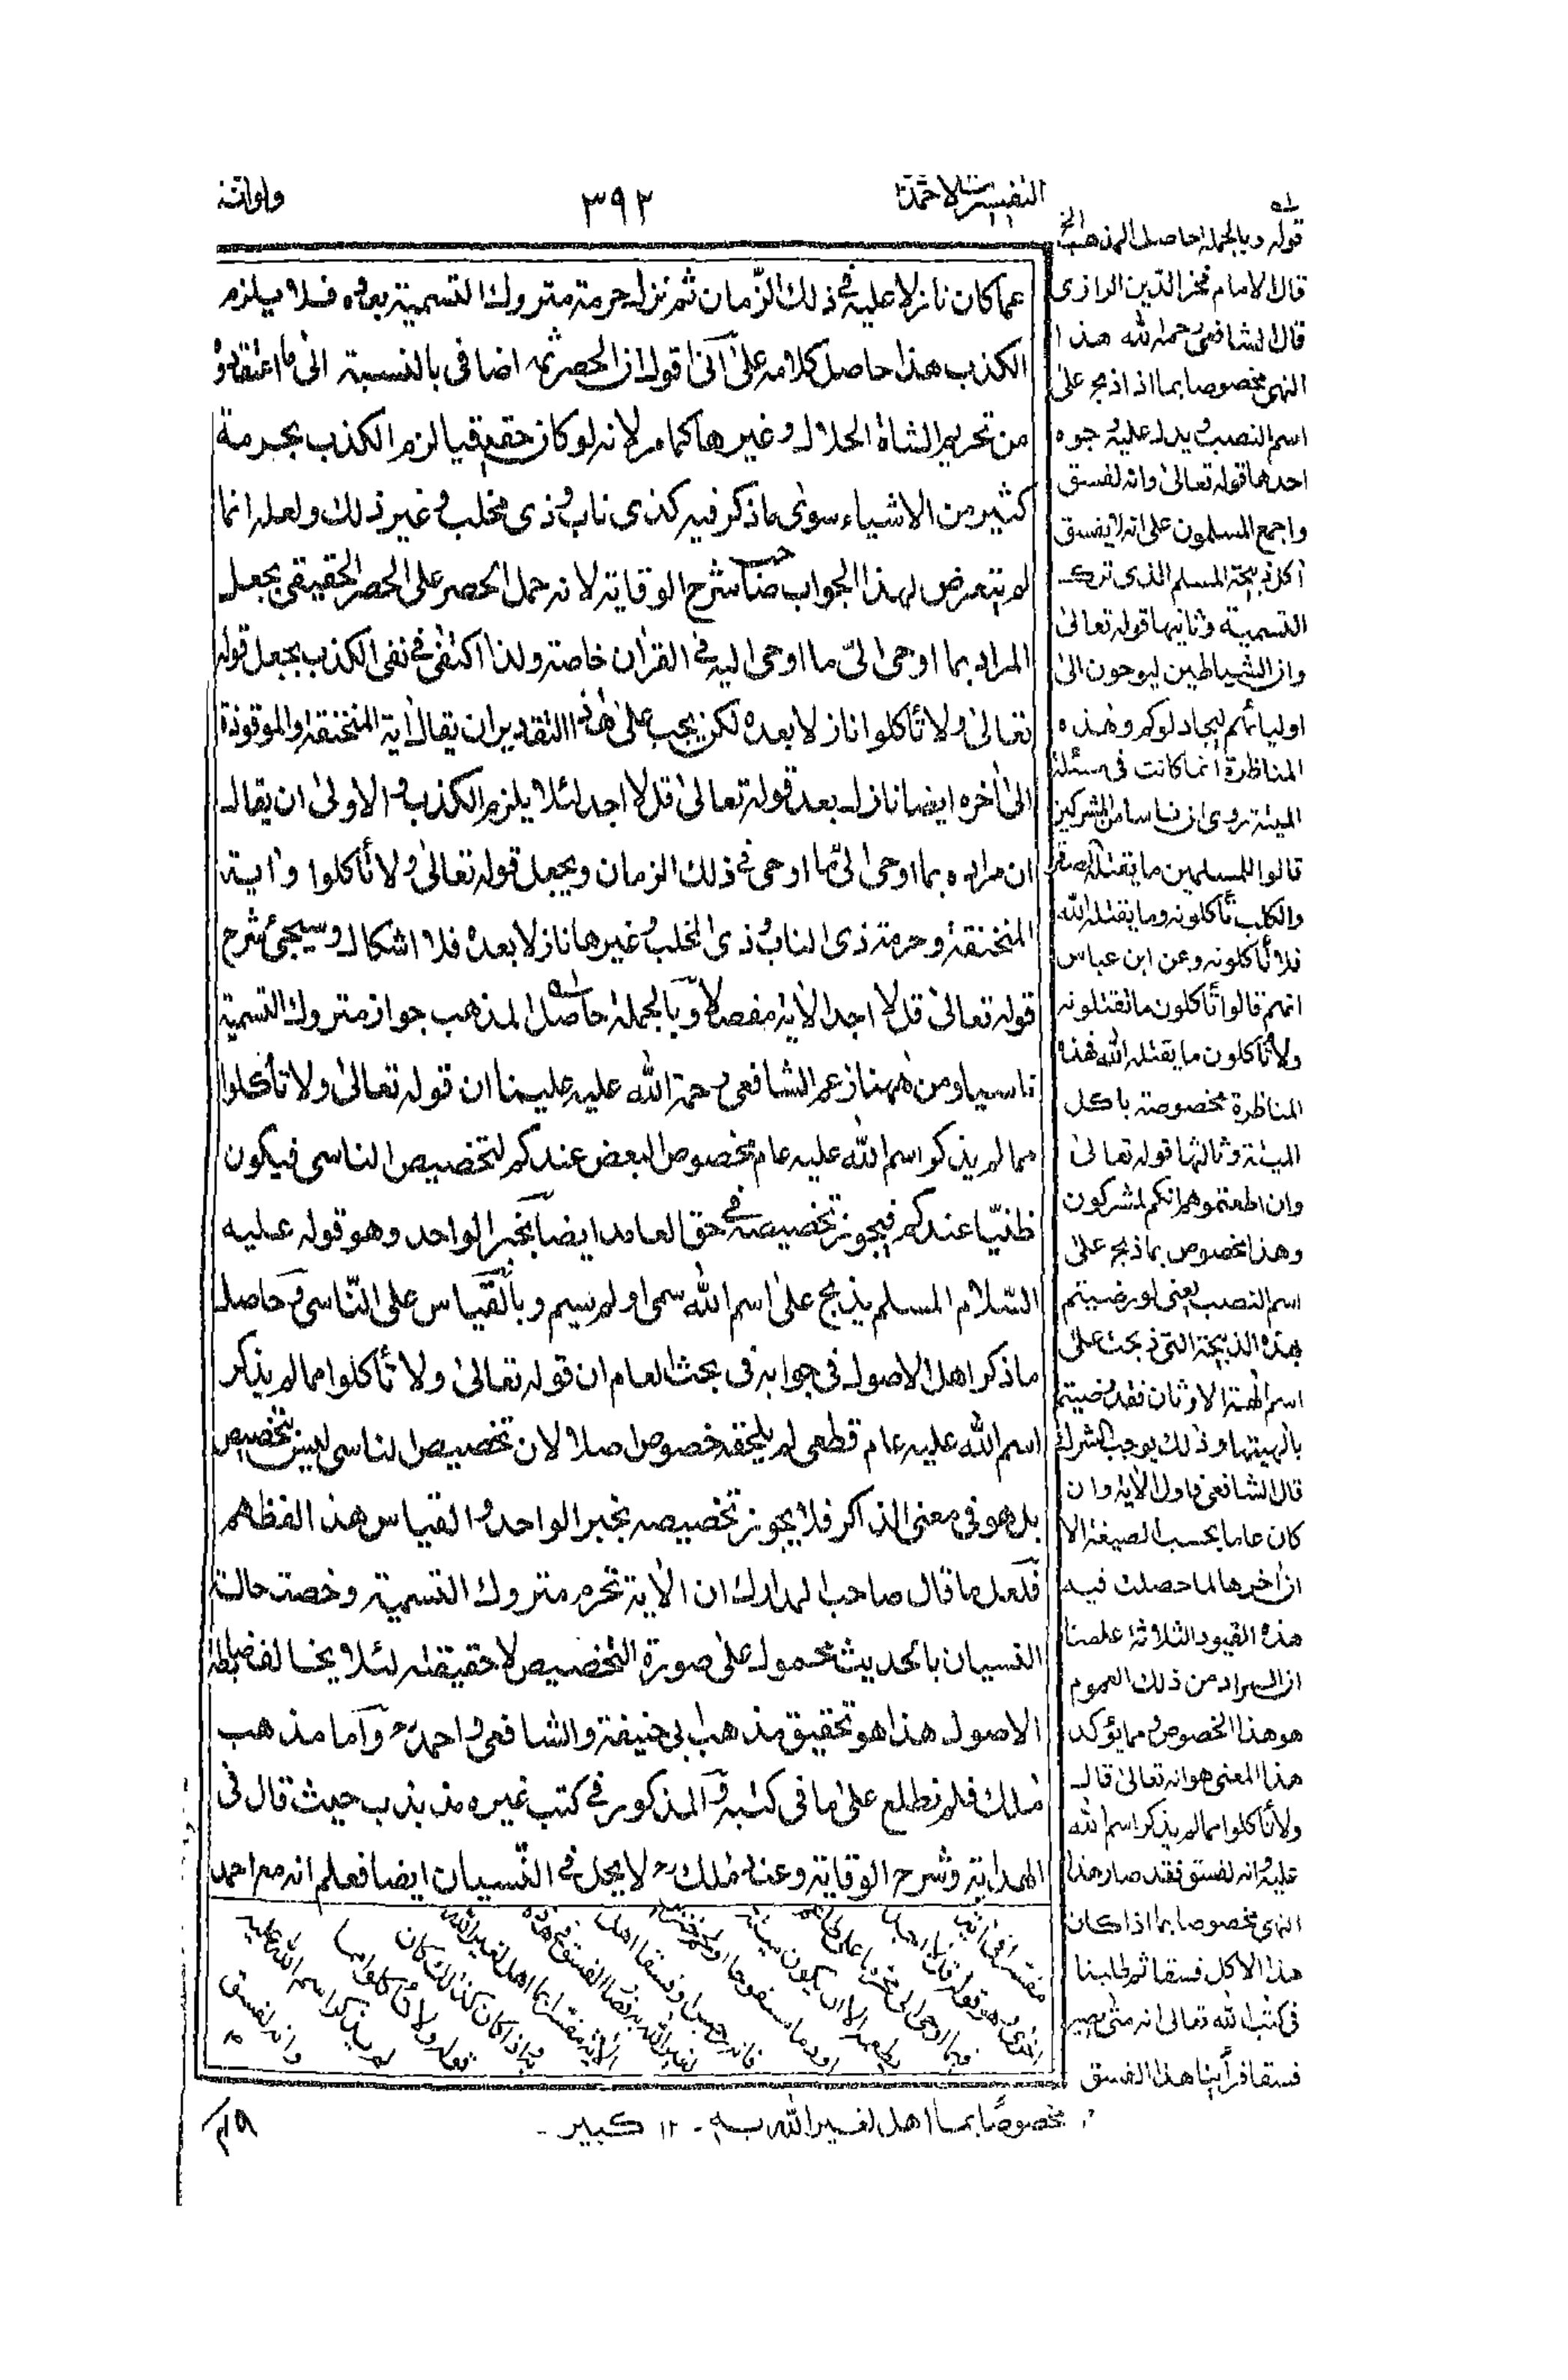 التفسيرات الاحمدية
٣٩٢
ولواننا
عما كان نازلا عليه فى ذلك الزمان ثم نزل حرمة متروك التسمية بعده فلا يلزم
الكذب هذا حاصل كلامه على انى اقول ان الحصر ثمه اضافى بالنسبة الى ما اعتقدوه
من تحريم الشاة الحلال وغيرها كما مر لانه لو كان حقيقيا لزم الكذب بحرمة
كثير من الاشياء سوى ما ذكر فيه كذى ناب وذى مخلب وغير ذلك ولعله انما
لم يتعرض لهذا الجواب صاحب شرح الوقاية لانه حمل الحصر على الحصر الحقيقى بجعل
المراد بما اوحى الىّ ما اوحى اليه فى القران خاصة ولذا اكتفى فى نفى الكذب بجعل قوله
تعالى ولا تأكلوا نازلا بعده لكن يجب على هذا التقدير ان يقال اية المنخنقة والموقوذة
الى اخره ايضا نازل بعد قوله تعالى قل لا اجد لئلا يلزم الكذب والاولى ان يقال
ان مراده بما اوحى الىّ ما اوحى فى ذلك الزمان ويجعل قوله تعالى ولا تأكلوا واية
المنخنقة وحرمة ذى الناب وذى المخلب وغيرها نازلا بعده فلا اشكال وسيجئ شرح
قوله تعالى قل لا اجد الاية مفصلا وبالجملة حاصل المذهب جواز متروك التسمية
ناسيا ومن ههنا زعم الشافعى رحمة الله عليه علينا ان قوله تعالى ولا تأكلوا
مما لم يذكر اسم الله عليه عام مخصوص البعض عندكم لتخصيص الناسى فيكون
ظنيّا عندكم فيجوز تخصيصه فى حق العامد ايضا بخبر الواحد وهو قوله عليه
السّلام المسلم يذبح على اسم الله سمى او لم يسم وبالقياس على النّاسى وحاصل
ما ذكر اهل الاصول فى جوابه فى بحث العام ان قوله تعالى ولا تأكلوا مما لم يذكر
اسم الله عليه عام قطعى لم يلحقه خصوص اصلا لان تخصيص الناسى ليس بتخصيص
بل هو فى معنى الذاكر فلا يجوز تخصيصه بخبر الواحد والقياس هذا لفظهم
فلعل ما قال صاحب المدارك ان الاية تحرم متروك التسمية وخصت حالة
النسيان بالحديث محمول على صورة التخصيص لا حقيقته لئلا يخالف ضابطة
الاصول هذا هو تحقيق مذهب ابى حنيفة والشافعى واحمد رح واما مذهب
ملك فلم نطلع على ما فى كتبه والمذكور فى كتب غيره مذبذب حيث قال فى
الهداية وشرح الوقاية وعند ملك رح لا يحل فى النّسيان ايضا فعلم انه مع احمد
قوله وبالجملة حاصل المذهب الخ
قال الامام فخر الدين الرازى
قال الشافعى رحمه الله هذا
النهى مخصوص بما اذا ذبح على
اسم النصب ويدل عليه وجوه
احدها قوله تعالى وانه لفسق
واجمع المسلمون على انه لا يفسق
اكل ذبيحة المسلم الذى ترك
التسمية وثانيها قوله تعالى
وان الشياطين ليوحون الى
اوليائهم ليجادلوكم وهذه
المناظرة انما كانت فى مسئلة
الميتة روى ان ناسا من المشركين
قالوا للمسلمين ما يقتله الصقر
والكلب تأكلونه وما يقتله الله
فلا تأكلونه وعن ابن عباس
انهم قالوا تأكلون ما تقتلونه
ولا تأكلون ما يقتله الله فهذه
المناظرة مخصوصة باكل
الميتة وثالثها قوله تعالى
وان اطعتموهم انكم لمشركون
وهذا مخصوص بما ذبح على
اسم النصب يعنى لو رضيتم
بهذه الذبيحة التى ذبحت على
اسم الهة الاوثان فقد رضيتم
بالهيتها وذلك يوجب الشرك
قال الشافعى فاول الاية وان
كان عاما بحسب الصيغة الا
ان اخرها لما حصلت فيه
هذه القيود الثلاثة علمنا
ان المراد من ذلك العموم
هو هذا الخصوص ومما يؤكد
هذا المعنى هو انه تعالى قال
ولا تأكلوا مما لم يذكر اسم الله
عليه وانه لفسق فقد صار هذا
النهى مخصوصا بما اذا كان
هذا الاكل فسقا ثم طلبنا
فى كتب الله تعالى انه متى يصير
فسقا فرأينا هذا الفسق
مفسرا فى اية
قل لا اجد
فيما اوحى الى محرما على طاعم
يطعمه الا ان يكون ميتة
او دما مسفوحا او لحم خنزير
فانه رجس او فسقا اهل
لغير الله به فصار الفسق فى هذه
الاية مفسرا بما اهل لغير الله
به واذا كان كذلك كان
قوله ولا تأكلوا مما
لم يذكر اسم الله عليه
وانه لفسق
مخصوصًا بما اهل لغير الله به - ١٢ كبير -